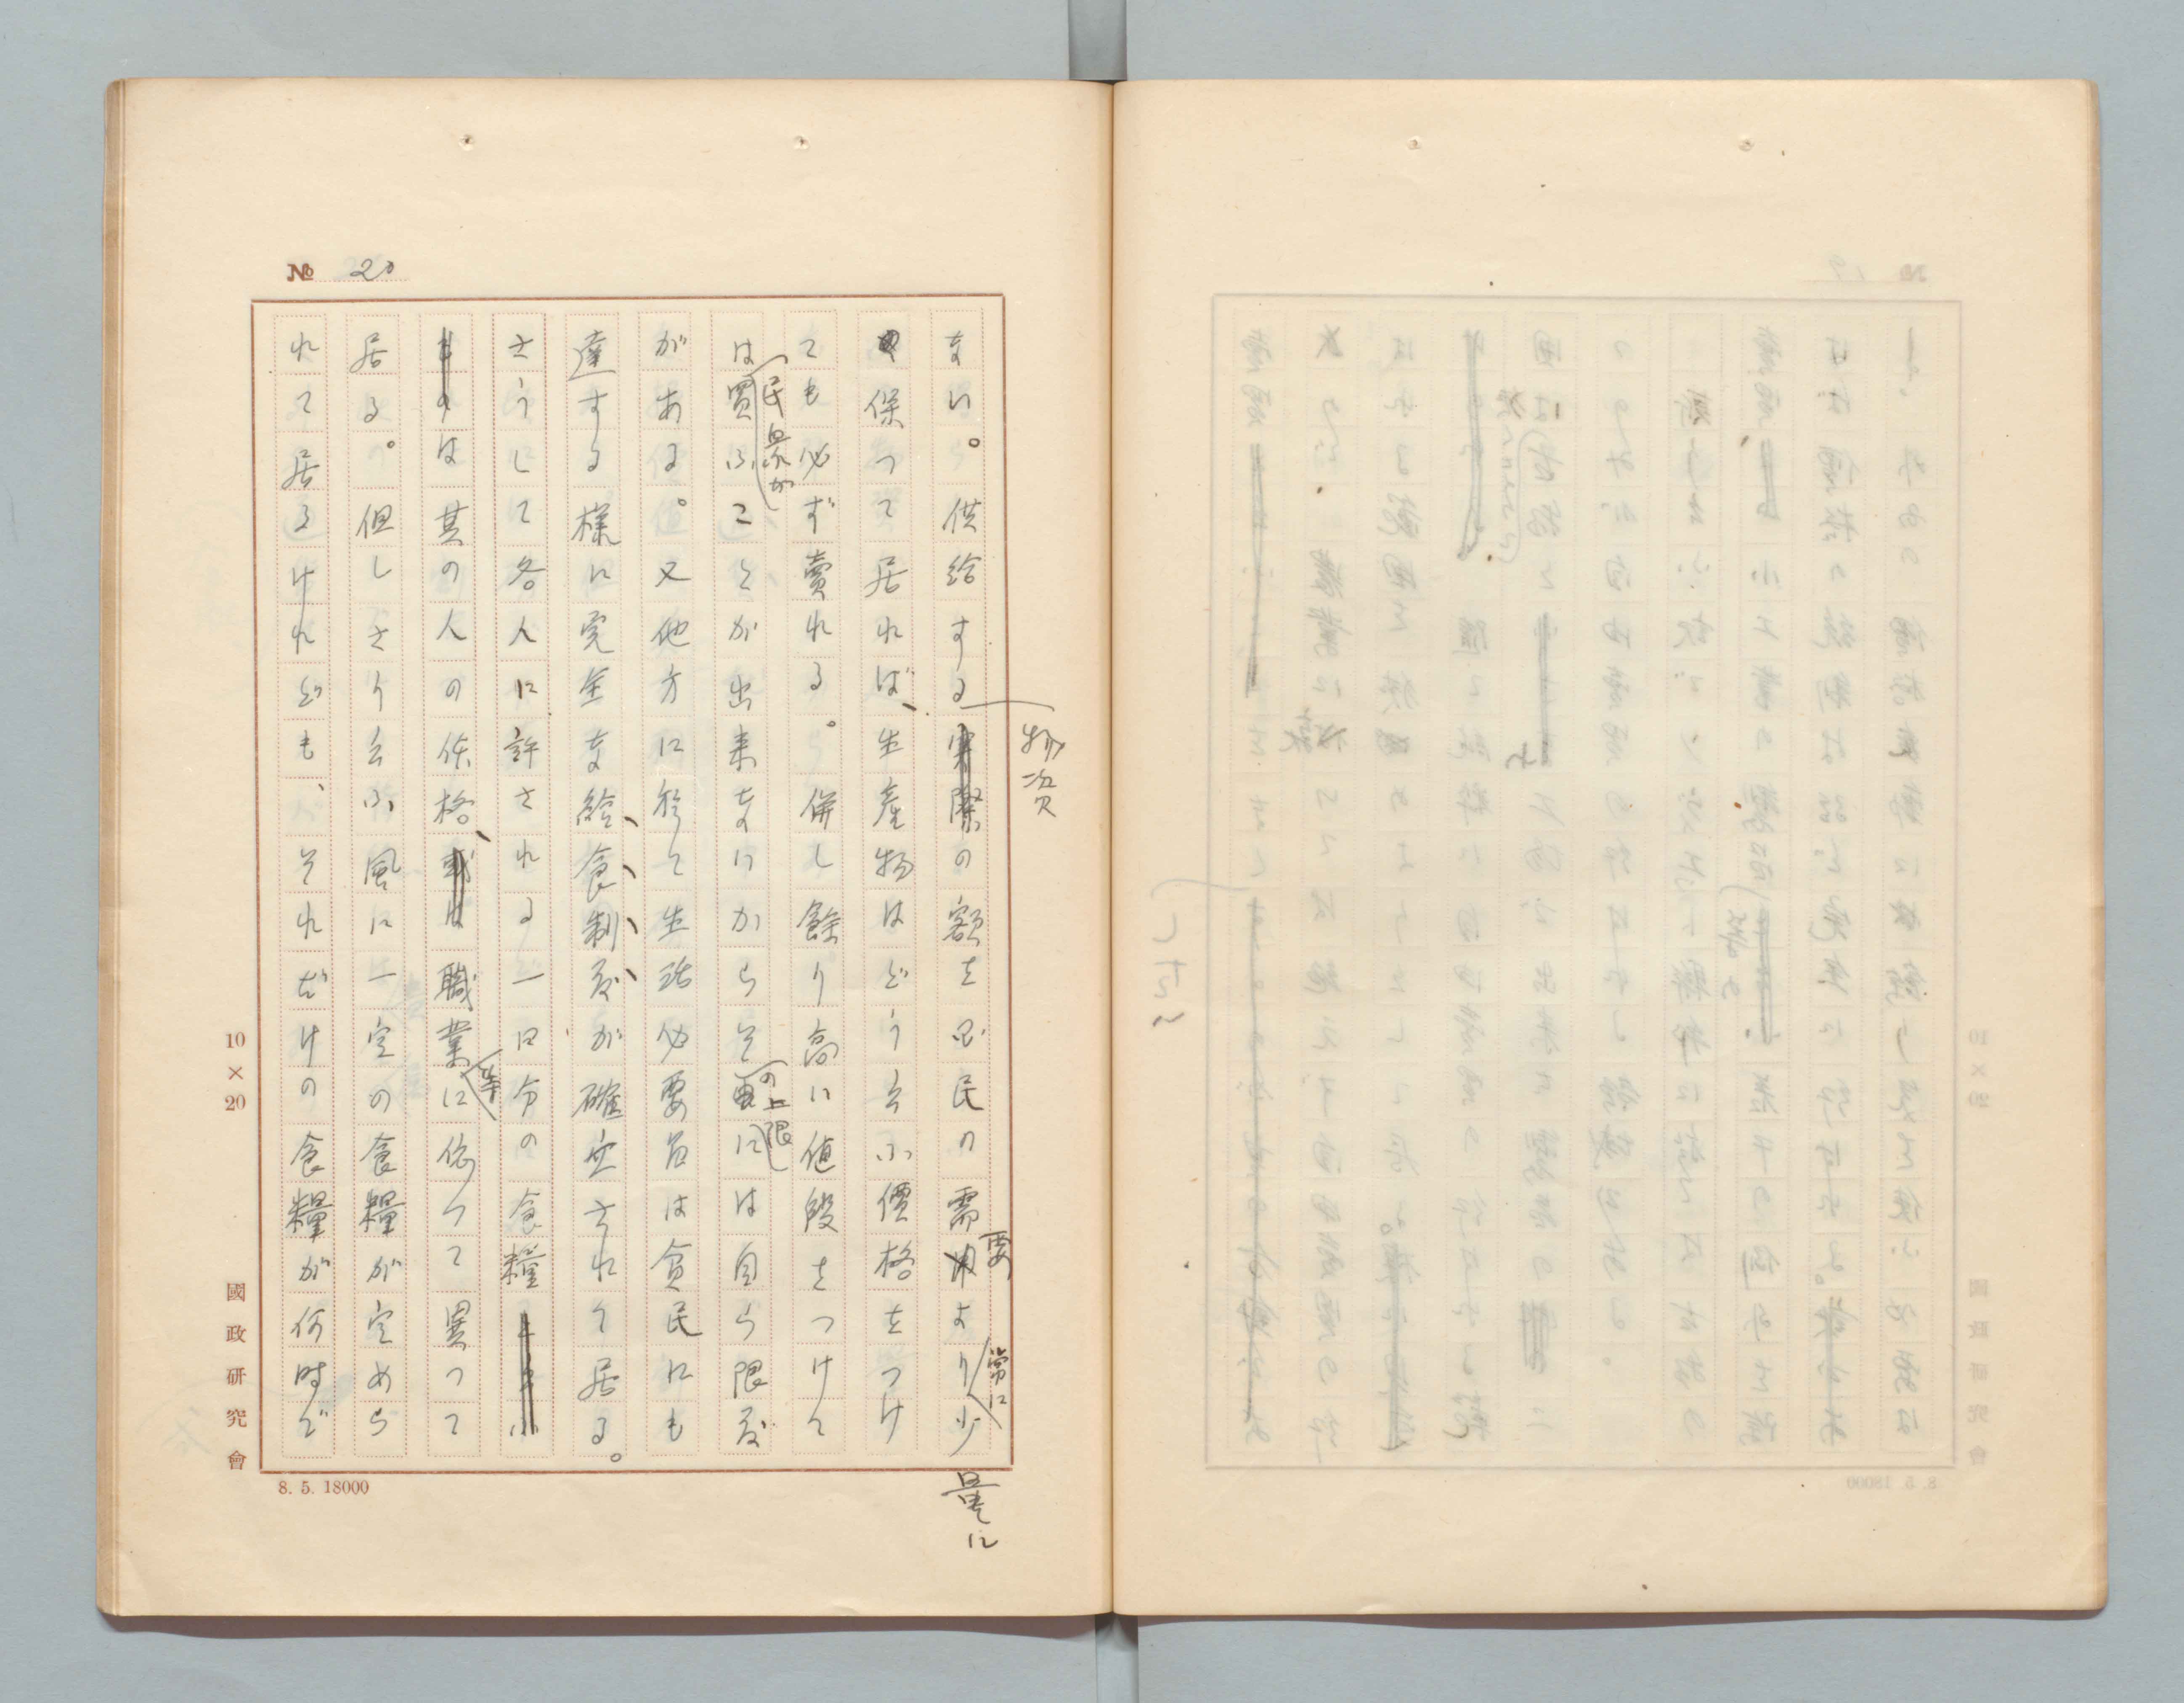 № 20
ない。供給する物資の額を国民の需要より常に少量に
保つて居れば、生産物はどう云ふ價格をつけ
ても必ず賣れる。併し餘り高い値段をつけて
は民衆が買ふことが出来ないからその上限には自ら限度
がある。又他方に於て生活必要品は貧民にも
達する様に完全な給食制度が確立されて居る。
さうして各人に許される一日分の食糧
は其の人の体格、職業等に依つて異つて
居る。但しさう云ふ風に一定の食糧が定めら
れて居るけれども、それだけの食糧が何時で
10×20
國政研究會
8. 5. 18000